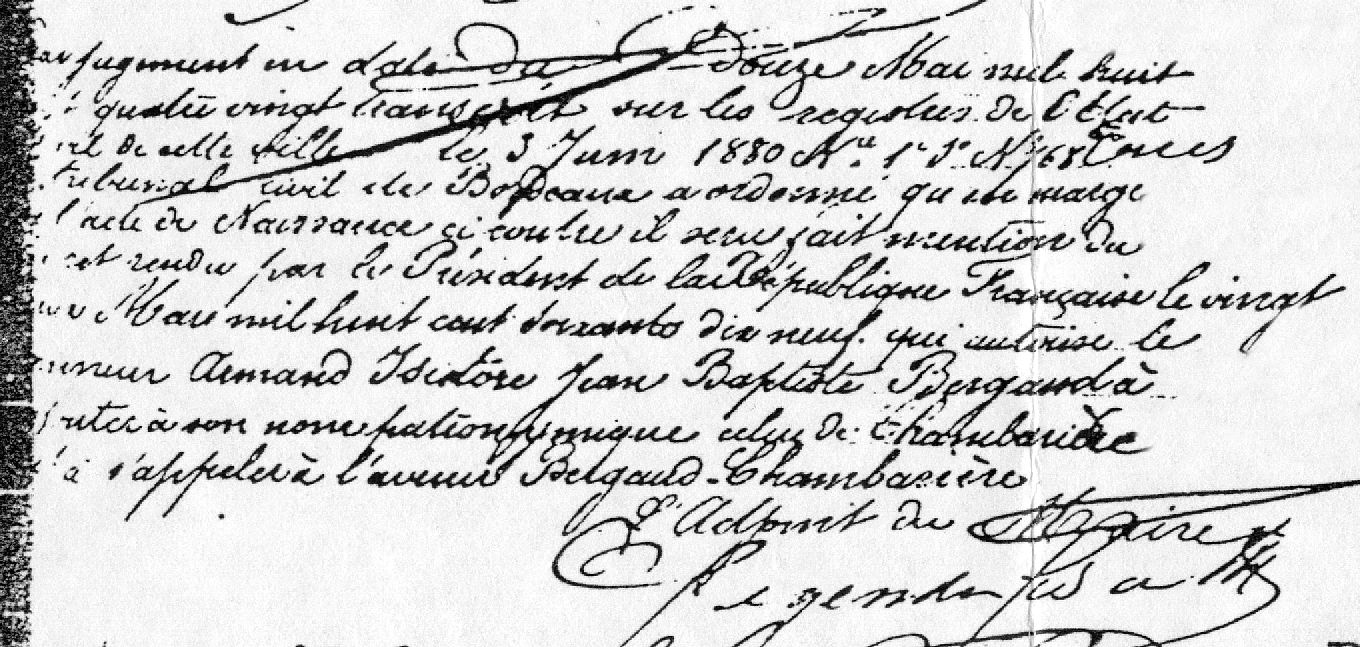 Par jugement en date du douze Mai mil huit
cent quatre vingt transcrit sur les registres de l'Etat
civil de cette ville le 3 Juin 1880 Non 1e So No 768
tribunal civil de Bordeaux a ordonné qu'en marge
l'acte de Naissance ci contre il sera fait mention du
décret rendu par le Président de la République Française le vingt
Mai mil huit cent soixante dix neuf qui autorise le
mineur Armand Isidore Jean Baptiste Bergaud à
ajouter à son nom patronymique celui de Chambarière
et à s'appeler à l'avenir Bergaud-Chambarière
L'Adjoint du Maire